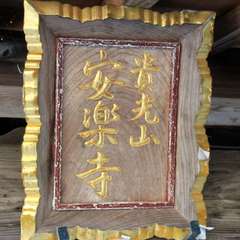 貴光山
安楽寺